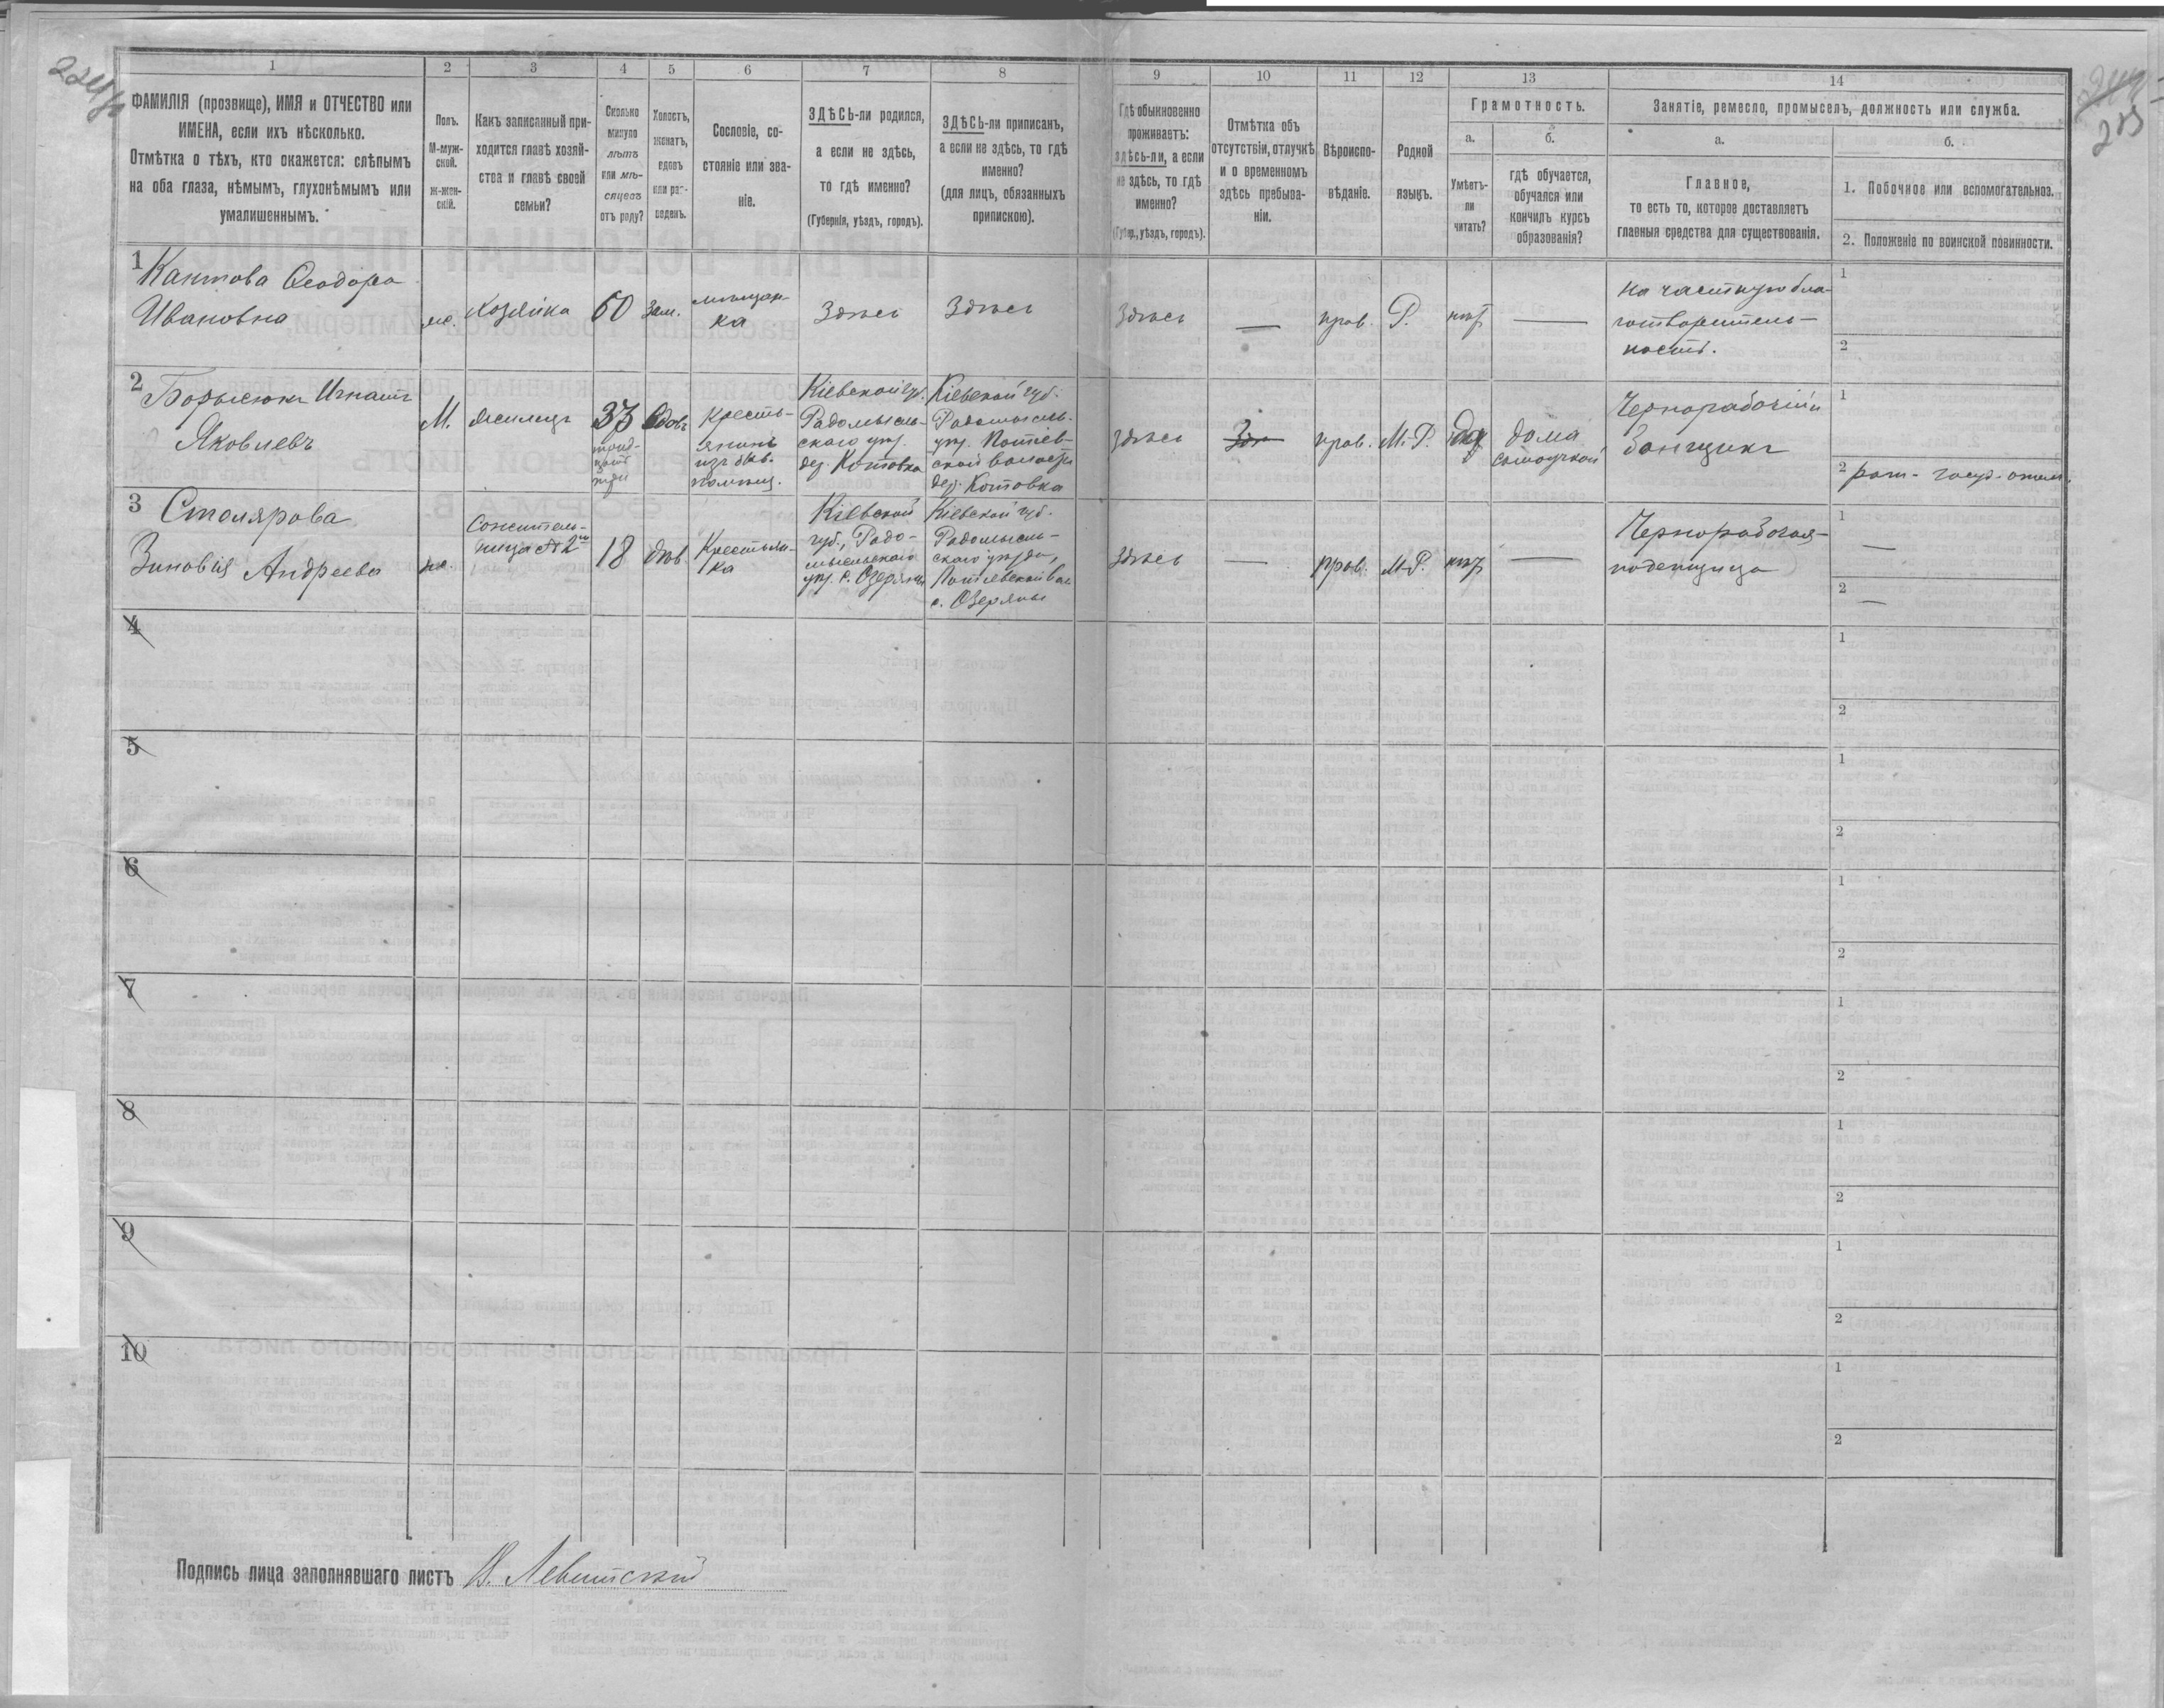 1
2
3
4
5
6
7
8
9
10
11
12
13
14
ФАМИЛІЯ (прозвище), ИМЯ и ОТЧЕСТВО или
ИМЕНА, если ихъ нѣсколько.
Отмѣтка о тѣхъ, кто окажется: слѣпымъ
на оба глаза, нѣмымъ, глухонѣмымъ или
умалишеннымъ.
Полъ.
М-муж-
ской.
ж-жен-
скій.
Какъ записанный при-
ходится главѣ хозяй-
ства и главѣ своей
семьи?
Сколько
минуло
лѣтъ
или мѣ-
сяцевъ
отъ роду?
Холостъ,
женатъ,
вдовъ
или раз-
веденъ.
Сословіе, со-
стояніе или зва-
ніе.
ЗДѢСЬ-ли родился,
а если не здѣсь,
то гдѣ именно?
(Губернія, уѣздъ, городъ).
ЗДѢСЬ-ли приписанъ,
а если не здѣсь, то гдѣ
именно?
(для лицъ, обязанныхъ
припискою).
Гдѣ обыкновенно
проживаетъ:
здѣсь-ли, а если
не здѣсь, то гдѣ
именно?
(Губер., уѣздъ, городъ).
Отмѣтка объ
отсутствіи, отлучкѣ
и о временномъ
здѣсь пребыва-
ніи.
Вѣроиспо-
вѣданіе.
Родной
языкъ.
Грамотность.
а.
Умѣетъ-
ли
читать?
б.
гдѣ обучается,
обучался или
кончилъ курсъ
образованія?
Занятіе, ремесло, промыселъ, должность или служба.
а.
Главное,
то есть то, которое доставляетъ
главныя средства для существованія.
б.
1. Побочное или вспомогательное.
2. Положеніе по воинской повинности.
1
Каптова Ѳеодора
Ивановна
ж.
Хозяйка
60
Зам.
мѣщан-
ка
Здѣсь
Здѣсь
Здѣсь
—
прав.
Р.
нѣт
—
На частную бла-
готворитель-
ность.
1
2
2
Борысюкъ Игнатъ
Яковлевъ
М.
жилецъ
33
трид-
цать
три
Вдовъ
кресть-
янинъ
изъ быв.
помѣщ.
Кіевской губ.
Радомысль-
скаго уѣз.
дер. Котовка
Кіевской губ.
Радомысль.
уѣз. Потіев-
ской волости
дер. Котовка
здѣсь
прав.
М.-Р.
да
дома
самоучкой
Чернорабочій и
банщикъ
1
2 рат. госуд. ополч.
3
Столярова
Зиновія Андреева
ж.
Сожитель-
ница № 2го
18
дѣв.
Крестьян-
ка
Кіевской
губ., Радо-
мысльскаго
уѣз. с. Озеряны
Кіевской губ.
Радомысль-
скаго уѣзда,
Потіевской вол
с. Озеряны
Здѣсь
—
прав.
М-Р.
нѣт
—
Чернорабочая-
поденщица
1
—
2
—
4
1
2
5
1
2
6
1
2
7
1
2
8
1
2
9
1
2
10
1
2
Подпись лица заполнявшаго листъ
В. Левитскій